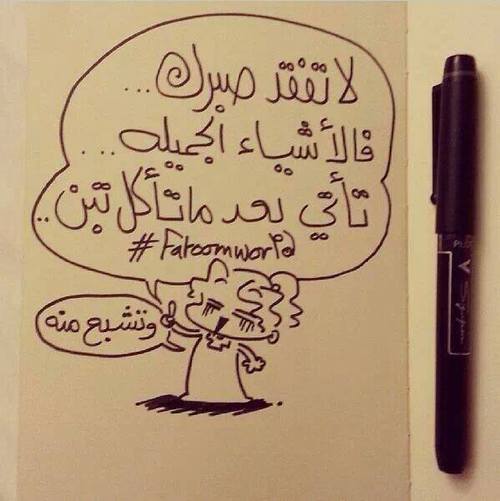 لا تفقد صبرك...
فالأشياء الجميله...
تأتي بعد ماتأكل تبن..
#Fatoomworld
وتشبع منه